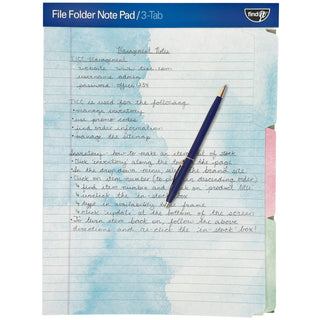 File Folder Note Pad / 3-Tab
find it
Management Notes
Management
website
username admin
password: office
is used for the following
• manage inventory
• use promo codes
• find order information
• manage site map
Inventory: how to make an item out of stock
• Click inventory along the top of the page
• In the drop down menu, the brand site
• Click on item number (to put in descending order)
↳ find item number and click on product title
↳ uncheck the in-stock box
↳ type in availability time frame
↳ click update at the bottom of the screen
• To turn item back on, follow the above
directions and re-click the "in-stock" box!